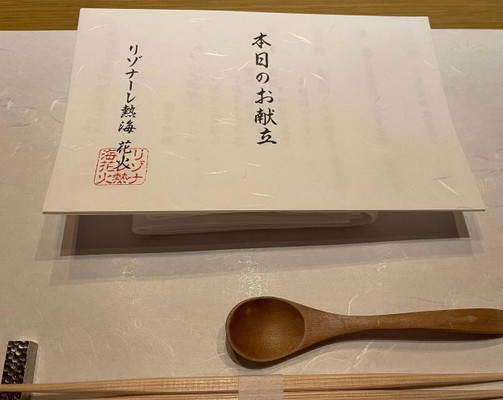 本日のお献立
リゾナーレ熱海 花火
リゾナーレ熱海花火